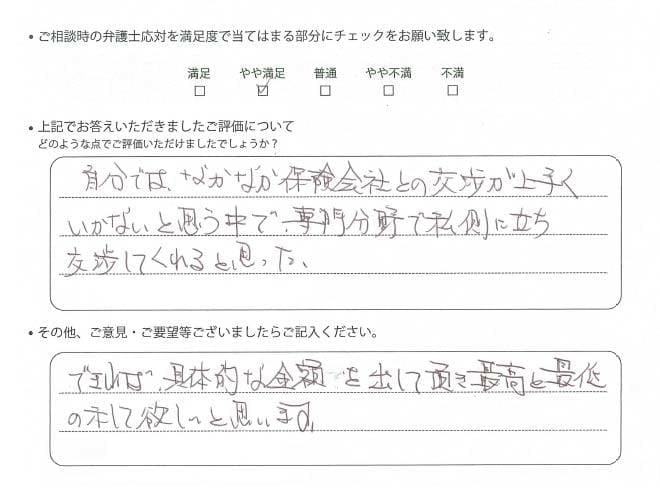 • ご相談時の弁護士応対を満足度で当てはまる部分にチェックをお願い致します。
満足 やや満足 普通 やや不満 不満
□ ☑ □ □ □
• 上記でお答えいただきましたご評価について
どのような点でご評価いただけましたでしょうか？
自分では、なかなか保険会社との交渉が上手く
いかないと思う中で、専門分野で私側に立ち
交渉してくれると思った、
• その他、ご意見・ご要望等ございましたらご記入ください。
できれば、具体的な金額を出して頂き最高と最低
の示して欲しいと思います。